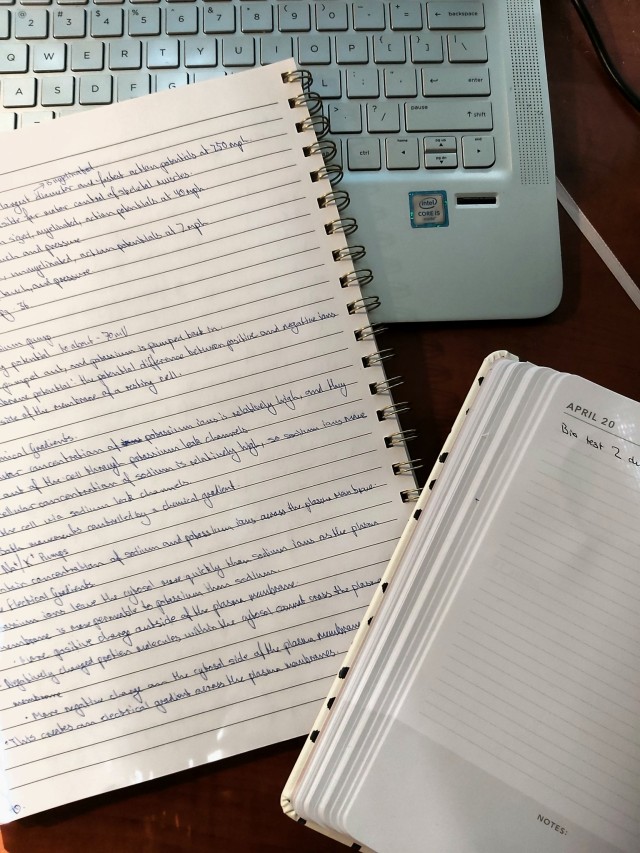 @ 2 # 3 $ 4 % 5 ^ 6 & 7 * 8 ( 9 ) 0 - + = backspace
Q W E R T Y U I O P { [ } ] | \
A S D F L : ; " ' enter
> . ? / pause shift
ctrl
intel
CORE i5
largest diameter and fastest action potentials at 250 mph
for motor control of skeletal muscles.
myelinated, action potentials at 40 mph
and pressure
unmyelinated, action potentials at 2 mph
touch, and pressure
pump
potential to about -70 mV
pumped out, and potassium is pumped back in.
potential: the potential difference between positive and negative ions
side of the membrane of a resting cell.
Gradients.
concentration of potassium ions is relatively high, and they
out of the cell through potassium leak channels.
concentration of sodium is relatively high, so sodium ions move
the cell via sodium leak channels
movements controlled by a chemical gradient.
Na+/K+ Pumps
concentration of sodium and potassium ions across the plasma membrane.
Electrical Gradients
ions leave the cytosol more quickly than sodium ions as the plasma
membrane is more permeable to potassium than sodium.
• More positive charge outside of the plasma membrane.
• Negatively charged protein molecules within the cytosol cannot cross the plasma
membrane
• More negative charge on the cytosol side of the plasma membrane
• This creates an electrical gradient across the plasma membranes.
APRIL 20
Bio test 2 du
NOTES: